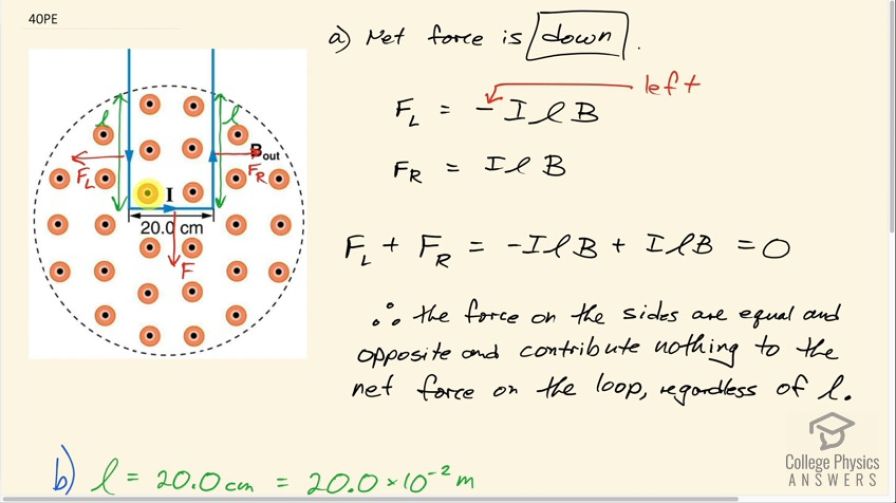 40PE
a) Net force is down.
left
F_L = - I l B
F_R = I l B
l
l
B_out
F_L
F_R
I
20.0 cm
F
F_L + F_R = -IlB + IlB = 0
∴ the force on the sides are equal and
opposite and contribute nothing to the
net force on the loop, regardless of l.
b) l = 20.0 cm = 20.0 × 10^-2 m
College Physics
ANSWERS